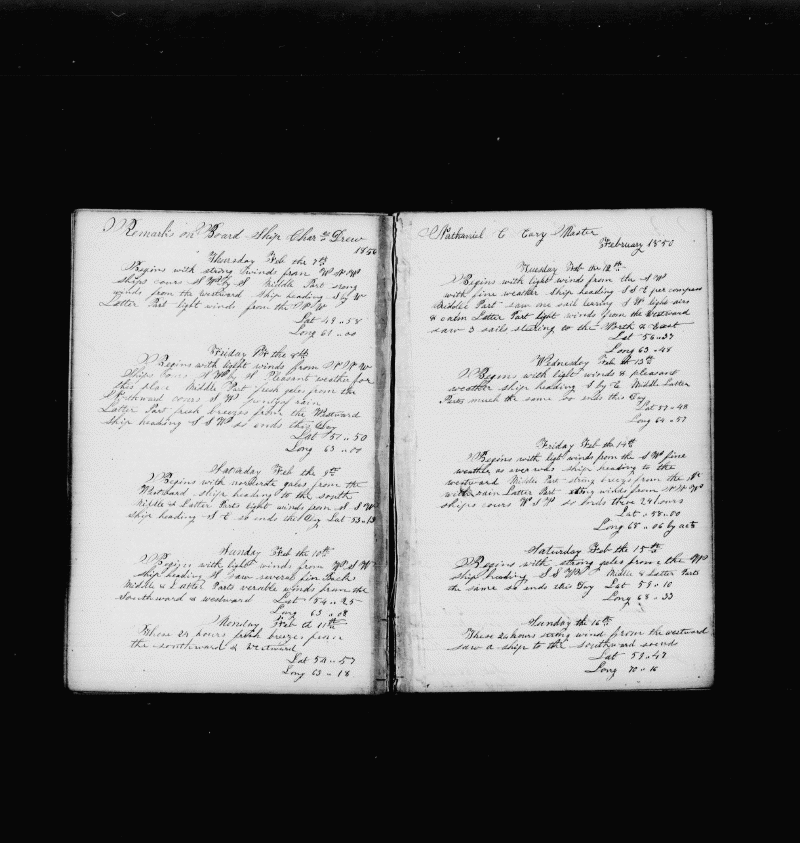 Remarks on Board Ship Chas Drew
1850
Thursday Feb the 7th
Begins with strong winds from W N W
ships cours S W by S Middle Part strong
winds from the westward Ship heading S by W
Latter Part light winds from the W
Lat 49..58
Long 61..00
Friday the 8th
Begins with light winds from W
Ships cours S W by Pleasant weather for
this place Middle Part fresh gales from the
Northward cours S W rain
Latter Part fresh breezes from the Westward
ship heading S S W so ends this Day
Lat 51..50
Long 63..00
Saturday Feb the 9th
Begins with moderate gales from the
Westward ship heading to the south
Middle & Latter Parts light winds from S S W
ship heading S E so ends the Day Lat 53..13
Sunday Feb the 10th
Begins with light winds from W S W
ship heading saw several fin Backs
Middle & Latter Parts verable winds from the
Southward & westward Lat 54..25
Long 63..08
Monday Feb the 11th
These 24 hours fresh breezes from
the southward & Westward
Lat 54..57
Long 63..18
Nathaniel C Cary Master
February 1850
Tuesday Feb the 12th
Begins with light winds from the S W
with fine weather Ship heading S S E per compass
Middle Part saw one sail bearing S W light airs
& calm Latter Part light winds from the Westward
saw 3 sails stearing to the North & East
Lat 56..37
Long 63..48
Wednesday Feb 13th
Begins with light winds & pleasant
weather ship heading S by E Middle Latter
Parts much the same so ends this Day
Lat 57..48
Long 64..57
Friday Feb the 14th
Begins with light winds from the S W fine
weather as ever was ship heading to the
westward Middle Part strong breezes from the
with rain Latter Part strong winds from W N W
ships cours W S W so ends these 24 hours
Lat 58..00
Long 68..06 by acts
Saturday Feb the 15th
Begins with strong gales from the W
ship heading S S W Middle & Latter Parts
the same so ends this Day Lat 59..10
Long 68..33
Sunday the 16th
These 24 hours strong wind from the westward
saw a ship to the southward so ends
Lat 59..47
Long 70..16